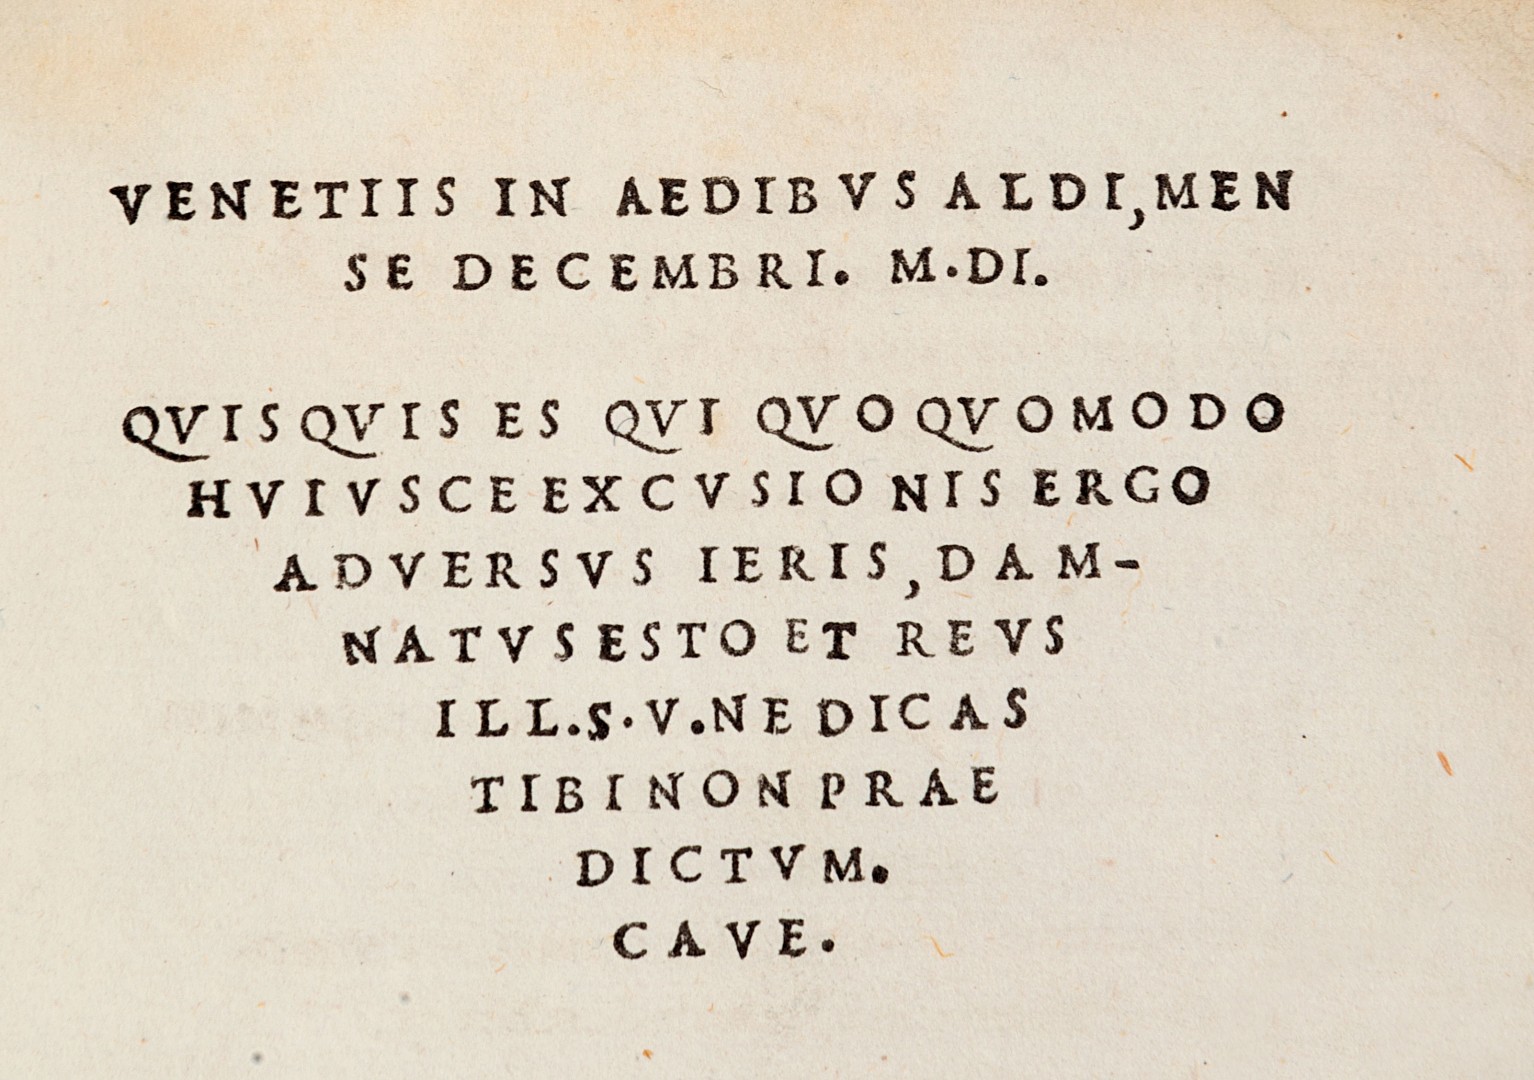 VENETIIS IN AEDIBVS ALDI, MEN
SE DECEMBRI. M.DI.
QVISQVIS ES QVI QVOQVOMODO
HVIVSCE EXCVSIONIS ERGO
ADVERSVS IERIS, DAM-
NATVS ESTO ET REVS
ILL.S.V. NE DICAS
TIBI NON PRAE
DICTVM.
CAVE.